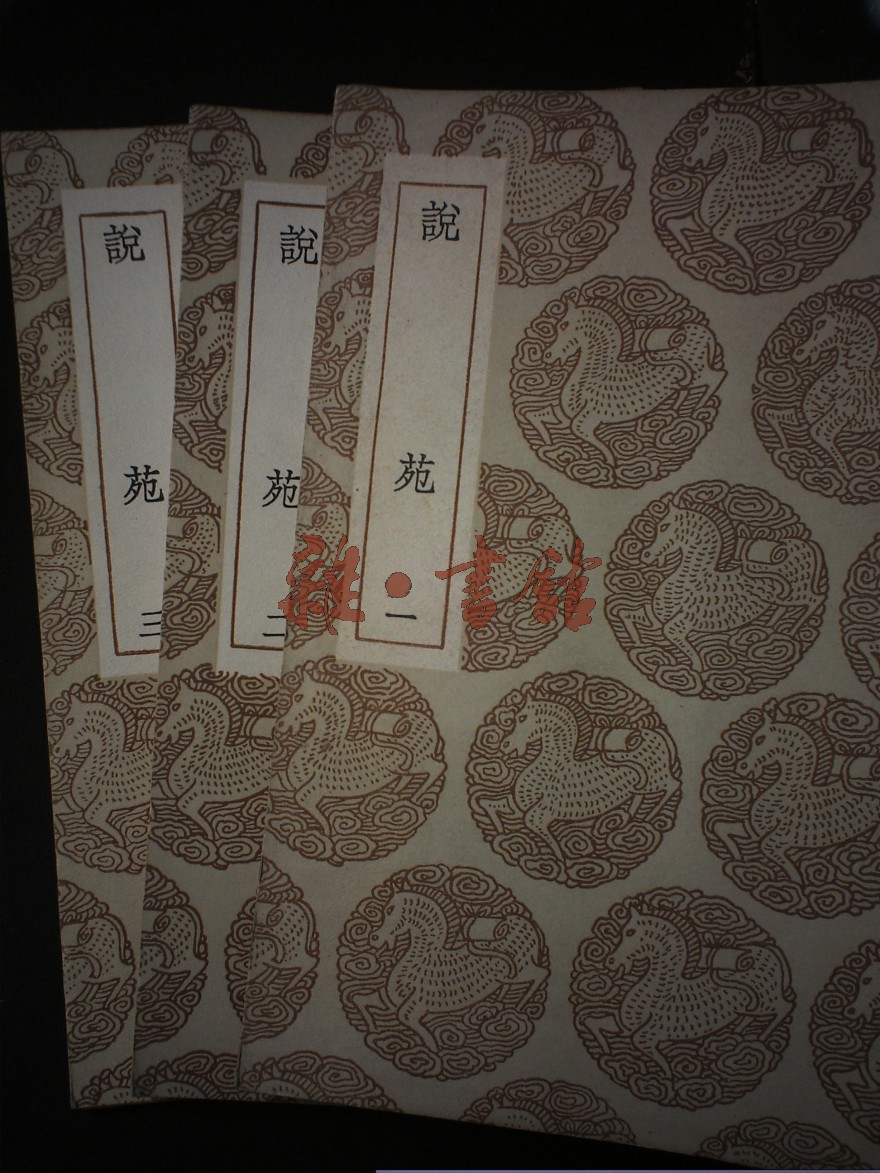 說苑 一
說苑 二
說苑 三
雜·書館